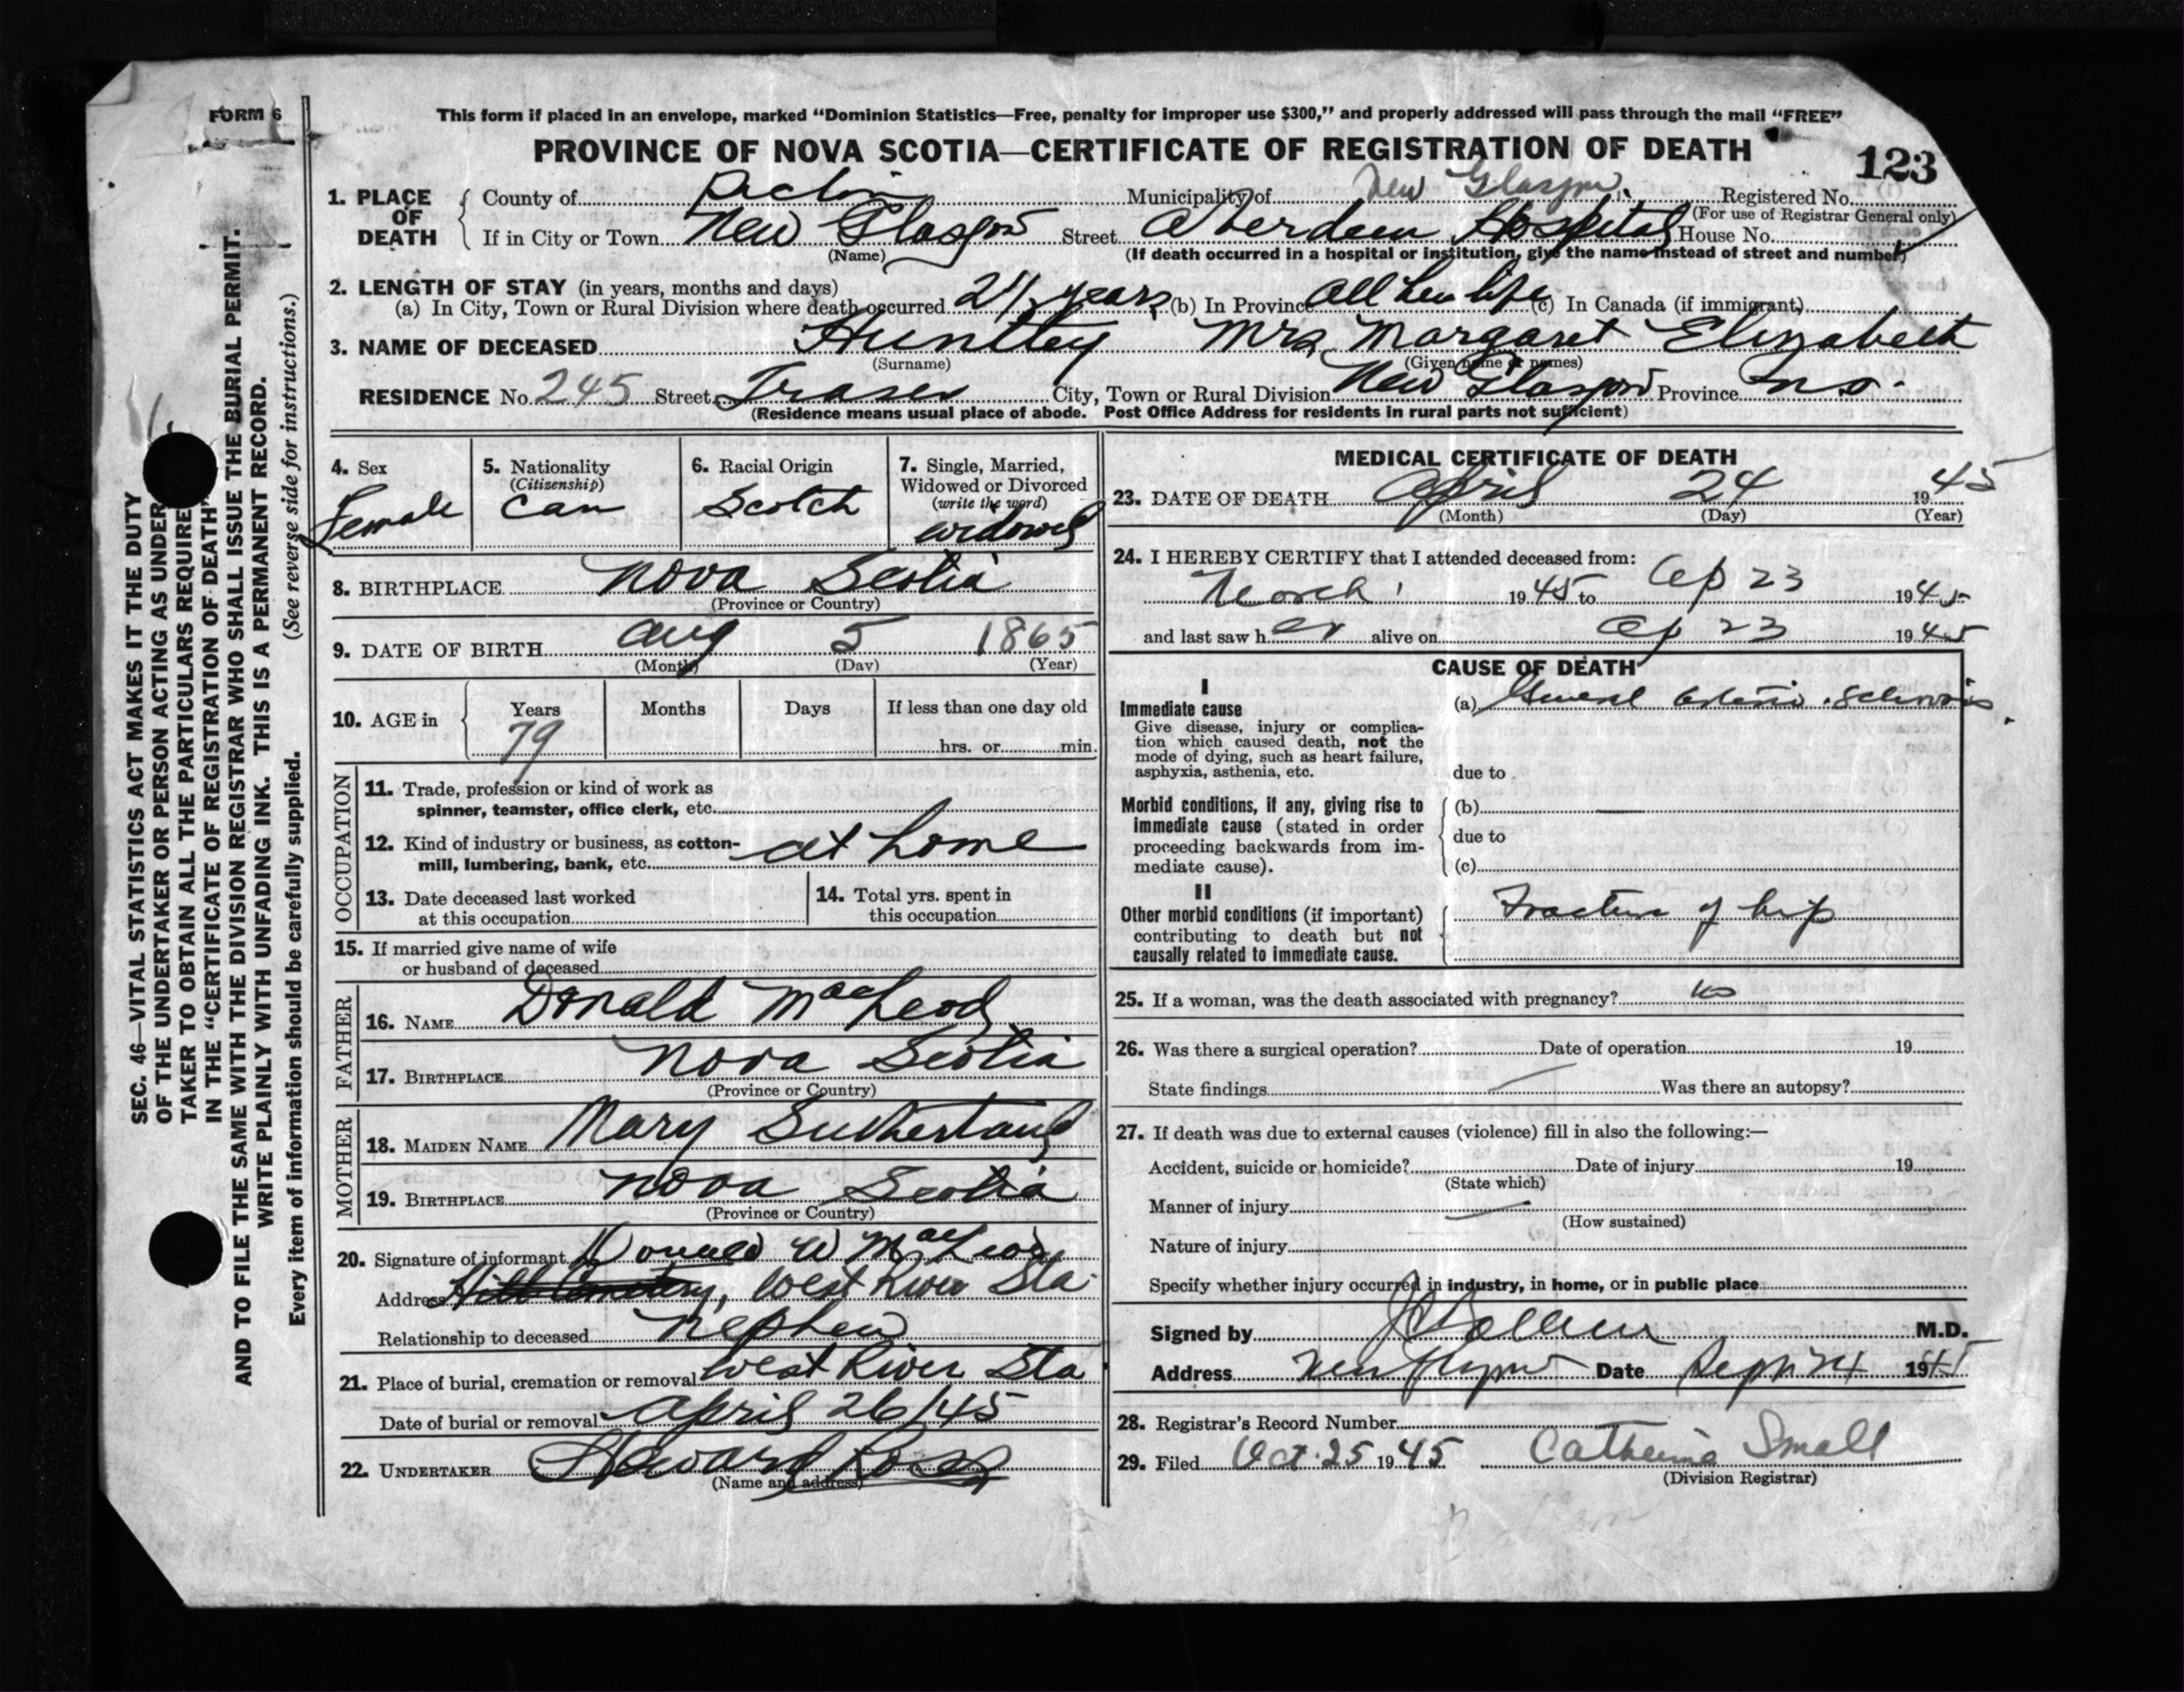 FORM 6
This form if placed in an envelope, marked "Dominion Statistics—Free, penalty for improper use $300," and properly addressed will pass through the mail "FREE"
PROVINCE OF NOVA SCOTIA—CERTIFICATE OF REGISTRATION OF DEATH
123
1. PLACE OF DEATH
County of Pictou Municipality of New Glasgow Registered No.
(For use of Registrar General only)
If in City or Town New Glasgow Street Aberdeen Hospital House No.
(Name) (If death occurred in a hospital or institution, give the name instead of street and number)
2. LENGTH OF STAY (in years, months and days)
(a) In City, Town or Rural Division where death occurred 2 1/2 years (b) In Province All her life (c) In Canada (if immigrant)
3. NAME OF DECEASED Huntley Mrs Margaret Elizabeth
(Surname) (Given name or names)
RESIDENCE No. 245 Street Fraser City, Town or Rural Division New Glasgow Province N.S.
(Residence means usual place of abode. Post Office Address for residents in rural parts not sufficient)
4. Sex
Female
5. Nationality
(Citizenship)
Can
6. Racial Origin
Scotch
7. Single, Married,
Widowed or Divorced
(write the word)
widowed
8. BIRTHPLACE Nova Scotia
(Province or Country)
9. DATE OF BIRTH Aug 5 1865
(Month) (Day) (Year)
10. AGE in
Years Months Days If less than one day old
79 hrs. or min.
OCCUPATION
11. Trade, profession or kind of work as
spinner, teamster, office clerk, etc.
12. Kind of industry or business, as cotton-
mill, lumbering, bank, etc. at home
13. Date deceased last worked
at this occupation
14. Total yrs. spent in
this occupation
15. If married give name of wife
or husband of deceased
FATHER
16. NAME Donald MacLeod
17. BIRTHPLACE Nova Scotia
(Province or Country)
MOTHER
18. MAIDEN NAME Mary Sutherland
19. BIRTHPLACE Nova Scotia
(Province or Country)
20. Signature of informant Donald W MacLeod
Address Hill Cemetery, West River Sta.
Relationship to deceased Nephew
21. Place of burial, cremation or removal West River Sta
Date of burial or removal April 26/45
22. UNDERTAKER Howard Ross
(Name and address)
MEDICAL CERTIFICATE OF DEATH
23. DATE OF DEATH April 24 1945
(Month) (Day) (Year)
24. I HEREBY CERTIFY that I attended deceased from:
March 1945 to Ap 23 1945
and last saw her alive on Ap 23 1945
CAUSE OF DEATH
I
Immediate cause
Give disease, injury or complica-
tion which caused death, not the
mode of dying, such as heart failure,
asphyxia, asthenia, etc.
(a) General Arterio-Sclerosis.
due to
Morbid conditions, if any, giving rise to
immediate cause (stated in order
proceeding backwards from im-
mediate cause).
(b) —
due to
(c)
II
Other morbid conditions (if important)
contributing to death but not
causally related to immediate cause.
Fracture of hip
25. If a woman, was the death associated with pregnancy? No
26. Was there a surgical operation? Date of operation 19
State findings Was there an autopsy?
27. If death was due to external causes (violence) fill in also the following:—
Accident, suicide or homicide? Date of injury 19
(State which)
Manner of injury
(How sustained)
Nature of injury
Specify whether injury occurred in industry, in home, or in public place
Signed by M.D.
Address New Glasgow Date Sept 24 1945
28. Registrar's Record Number
29. Filed Oct. 25 1945 Catherine Small
(Division Registrar)
SEC. 46—VITAL STATISTICS ACT MAKES IT THE DUTY
OF THE UNDERTAKER OR PERSON ACTING AS UNDER
TAKER TO OBTAIN ALL THE PARTICULARS REQUIRE
IN THE "CERTIFICATE OF REGISTRATION OF DEATH"
AND TO FILE THE SAME WITH THE DIVISION REGISTRAR WHO SHALL ISSUE THE BURIAL PERMIT.
WRITE PLAINLY WITH UNFADING INK. THIS IS A PERMANENT RECORD.
Every item of information should be carefully supplied. (See reverse side for instructions.)